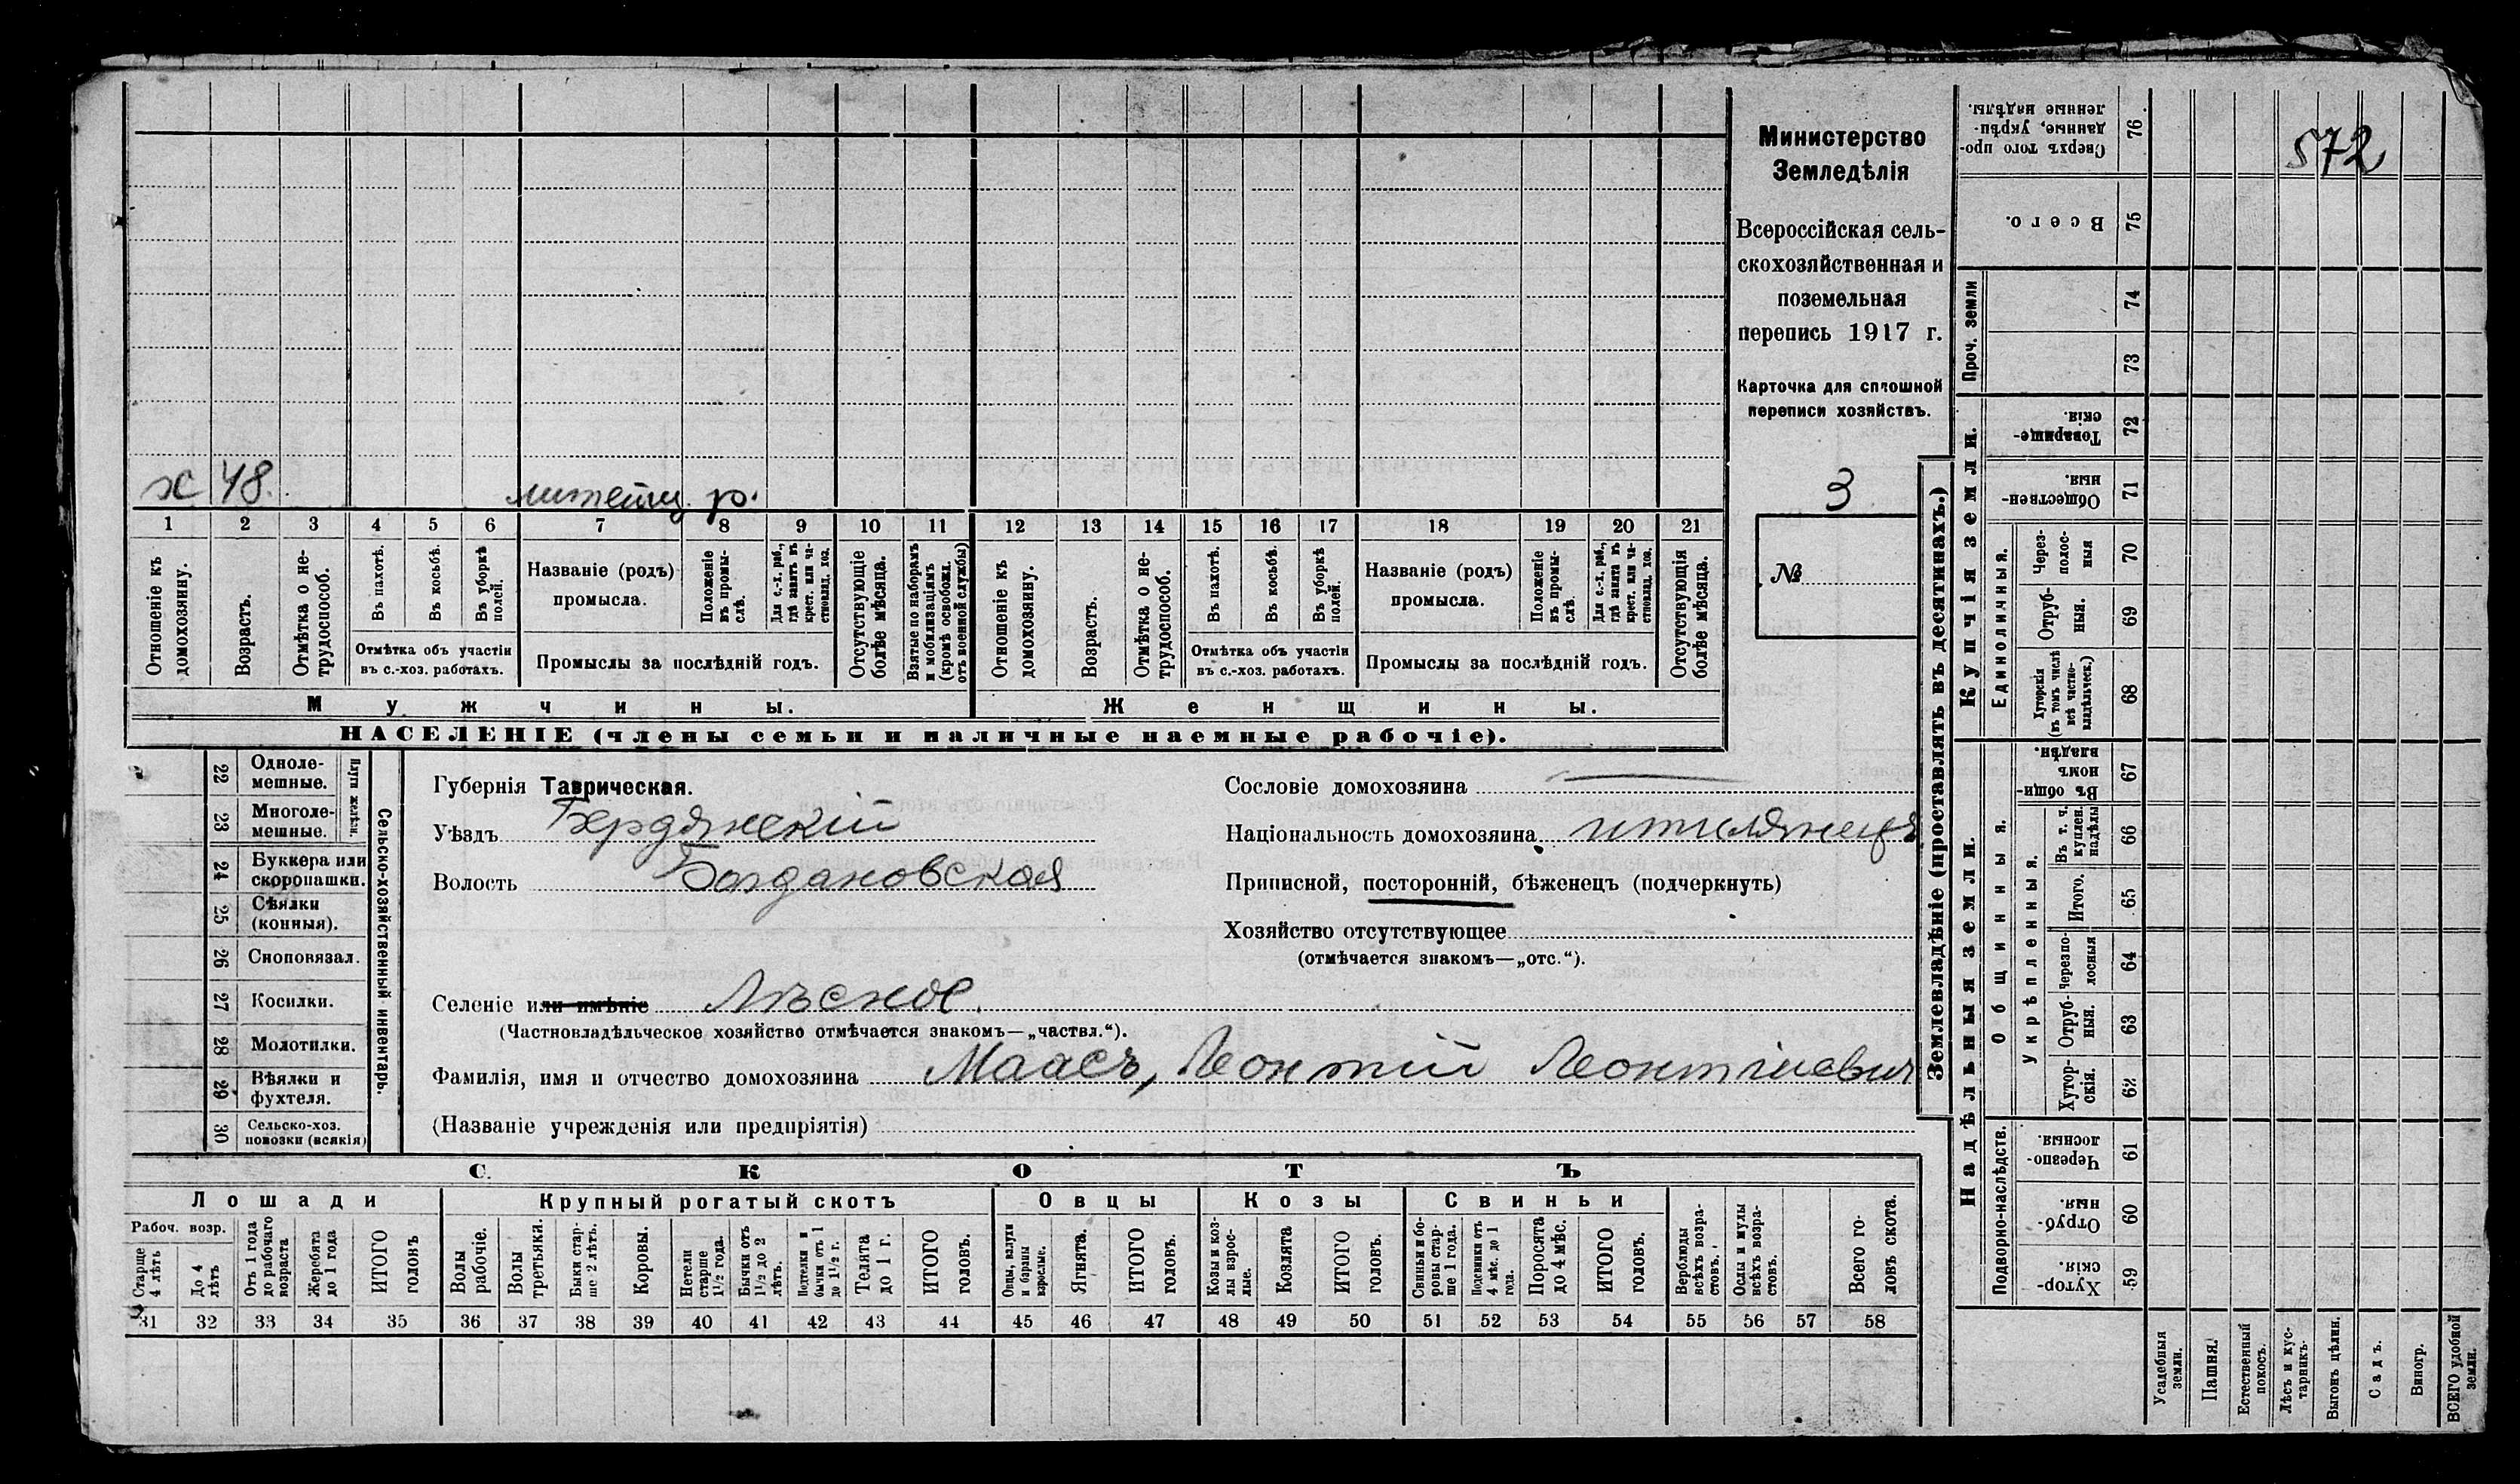 х 48. литейщ. р.
1 2 3 4 5 6 7 8 9 10 11 12 13 14 15 16 17 18 19 20 21
Отношеніе къ домохозяину.
Возрастъ.
Отмѣтка о не-трудоспособ.
Въ пахотѣ.
Въ косьбѣ.
Въ уборкѣ полей.
Отмѣтка объ участіи
въ с.-хоз. работахъ.
Названіе (родъ)
промысла.
Положеніе въ промы-слѣ.
Для с.-х. раб., гдѣ занятъ въ крест. или ча-стновлад. хоз.
Промыслы за послѣдній годъ.
Отсутствующіе болѣе мѣсяца.
Взятые по наборамъ и мобилизаціямъ (кромѣ освобожд. отъ военной службы)
Отношеніе къ домохозяину.
Возрастъ.
Отмѣтка о не-трудоспособ.
Въ пахотѣ.
Въ косьбѣ.
Въ уборкѣ полей.
Отмѣтка объ участіи
въ с.-хоз. работахъ.
Названіе (родъ)
промысла.
Положеніе въ промы-слѣ.
Для с.-х. раб., гдѣ занята въ крест. или ча-стновлад. хоз.
Промыслы за послѣдній годъ.
Отсутствующія болѣе мѣсяца.
Мужчины.
Женщины.
НАСЕЛЕНІЕ (члены семьи и наличные наемные рабочіе).
Министерство
Земледѣлія
Всероссійская сель-
скохозяйственная и
поземельная
перепись 1917 г.
Карточка для сплошной
переписи хозяйствъ.
3
№
22 Одноле-мешные.
23 Многоле-мешные.
Плуги желѣзн.
24 Буккера или скоропашки.
25 Сѣялки (конныя).
26 Сноповязал.
27 Косилки.
28 Молотилки.
29 Вѣялки и фухтеля.
30 Сельско-хоз. повозки (всякія)
Сельско-хозяйственный инвентарь.
Губернія Таврическая.
Уѣздъ Бердянскій
Волость Богдановская
Селеніе или имѣніе Лѣсное.
(Частновладѣльческое хозяйство отмѣчается знакомъ—„частвл.“).
Фамилія, имя и отчество домохозяина Маасъ, Леонтій Леонтіевич
(Названіе учрежденія или предпріятія)
Сословіе домохозяина
Національность домохозяина
Приписной, посторонній, бѣженецъ (подчеркнуть)
Хозяйство отсутствующее
(отмѣчается знакомъ—„отс.“).
СКОТЪ
Лошади
Крупный рогатый скотъ
Овцы
Козы
Свиньи
Рабоч. возр.
Старше 4 лѣтъ
До 4 лѣтъ
Отъ 1 года до рабочаго возраста
Жеребята до 1 года
ИТОГО головъ
Волы рабочіе.
Волы третьяки.
Быки стар-ше 2 лѣтъ.
Коровы.
Нетели старше 1½ года.
Бычки отъ 1½ до 2 лѣтъ.
Подтелки и бычки отъ 1 до 1½ г.
Телята до 1 г.
ИТОГО головъ.
Овцы, валухи и бараны взрослые.
Ягнята.
ИТОГО головъ.
Козы и коз-лы взрос-лые.
Козлята
ИТОГО головъ.
Свиньи и бо-ровы стар-ше 1 года.
Подсвинки отъ 4 мѣс. до 1 года.
Поросята до 4 мѣс.
ИТОГО головъ.
Верблюды всѣхъ возра-стовъ.
Ослы и мулы всѣхъ возра-стовъ.
Всего го-ловъ скота.
31 32 33 34 35 36 37 38 39 40 41 42 43 44 45 46 47 48 49 50 51 52 53 54 55 56 57 58
572
Землевладѣніе (проставлять въ десятинахъ.)
Купчія земли.
Надѣльныя земли.
Сверхъ того про-данные, укрѣп-ленные надѣлы. 76
Всего. 75
Проч. земли
74
73
Товарище-скія. 72
Обществен-ныя. 71
Единоличныя.
Через-полос-ныя 70
Отруб-ныя. 69
Хуторскія (въ томъ числѣ всѣ частно-владѣльческ.) 68
Общинныя.
Въ общи-номъ владѣн. 67
Укрѣпленныя.
Въ т. ч. куплен. надѣлы 66
Итого. 65
Черезпо-лосныя 64
Отруб-ныя. 63
Хутор-скія. 62
Подворно-наслѣдств.
Черезпо-лосныя. 61
Отруб-ныя. 60
Хутор-скія. 59
Усадебныя земли.
Пашня.
Естественный покосъ.
Лѣсъ и кус-тарникъ.
Выгонъ цѣлин.
Садъ.
Виногр.
ВСЕГО удобной земли.